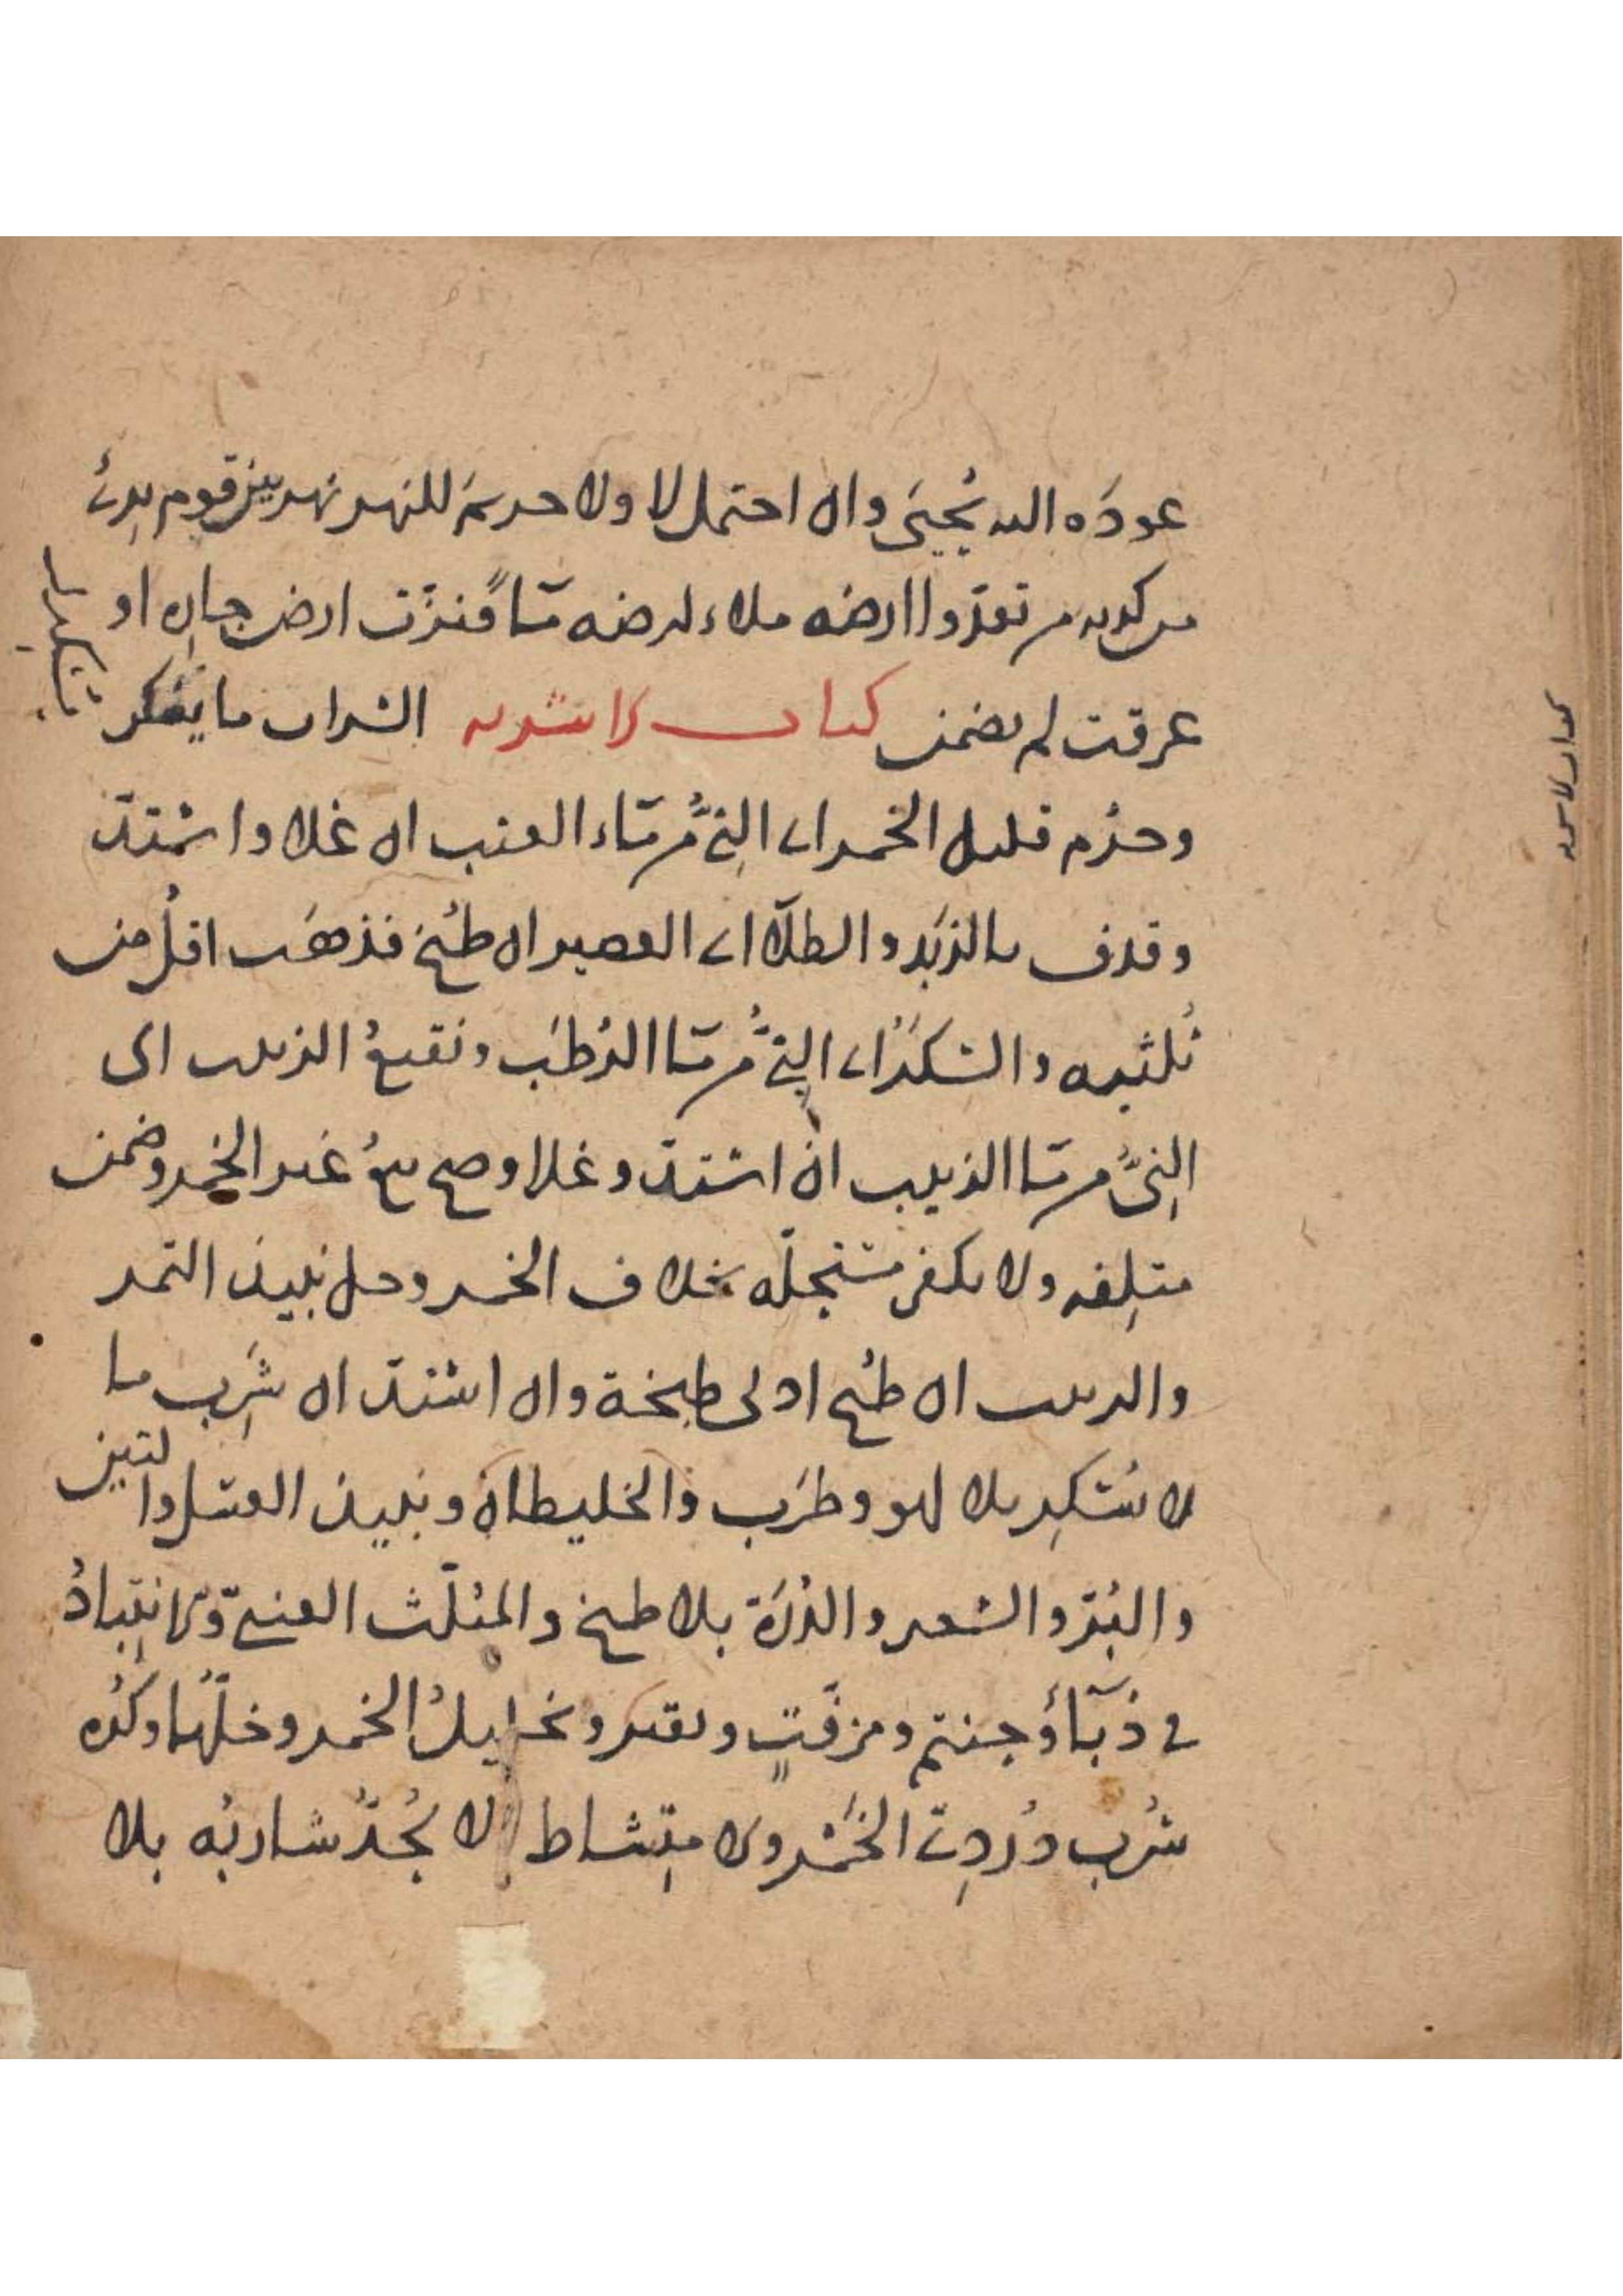 عوده اليه يُحيَى وان احتمل لا ولا حريم للنهر نهر بين قوم بدئ
من كريه من تعذر وا ارضه ملاء ارضه ماً فنزّت ارض جاره او
عرقت لم يضمن كتاب الاشربه الشراب ما يسكر
وحرم قليل الخمر اي النيُّ من ماء العنب ان غلا واشتدّ
وقذف بالزبَد والطلآ اي العصير ان طُبخ فذهَب اقلُ من
ثُلثيه والسَّكَرُ اي النِيُّ من ما الرُطَب ونقيعُ الزبيب اى
النِىُّ من ما الزبيب ان اشتدّ وغلا وصح بيعُ غير الخمر وضمن
متلِفه ولا يكفر مستحِلّه بخلاف الخمر وحل نبيذ التمر
والزبيب ان طُبخ ادنى طبخة وان اشتدّ ان شَرِب ما
لا يُسكِر بلا لهو وطرَب والخليطان ونبيذ العسل والتين
والبُرّ والشعير والذُرَة بلا طبخ والمثلّث العنبيّ والانتِباذُ
في دُبّاءٍ وحنتم ومزفّتٍ ونقير وتخليلُ الخمر وخلّها وكُره
شُرب دُردِيّ الخَمْر والامتِشاط لا يُحَدّ شاربُه بلا
كتاب الاشربه